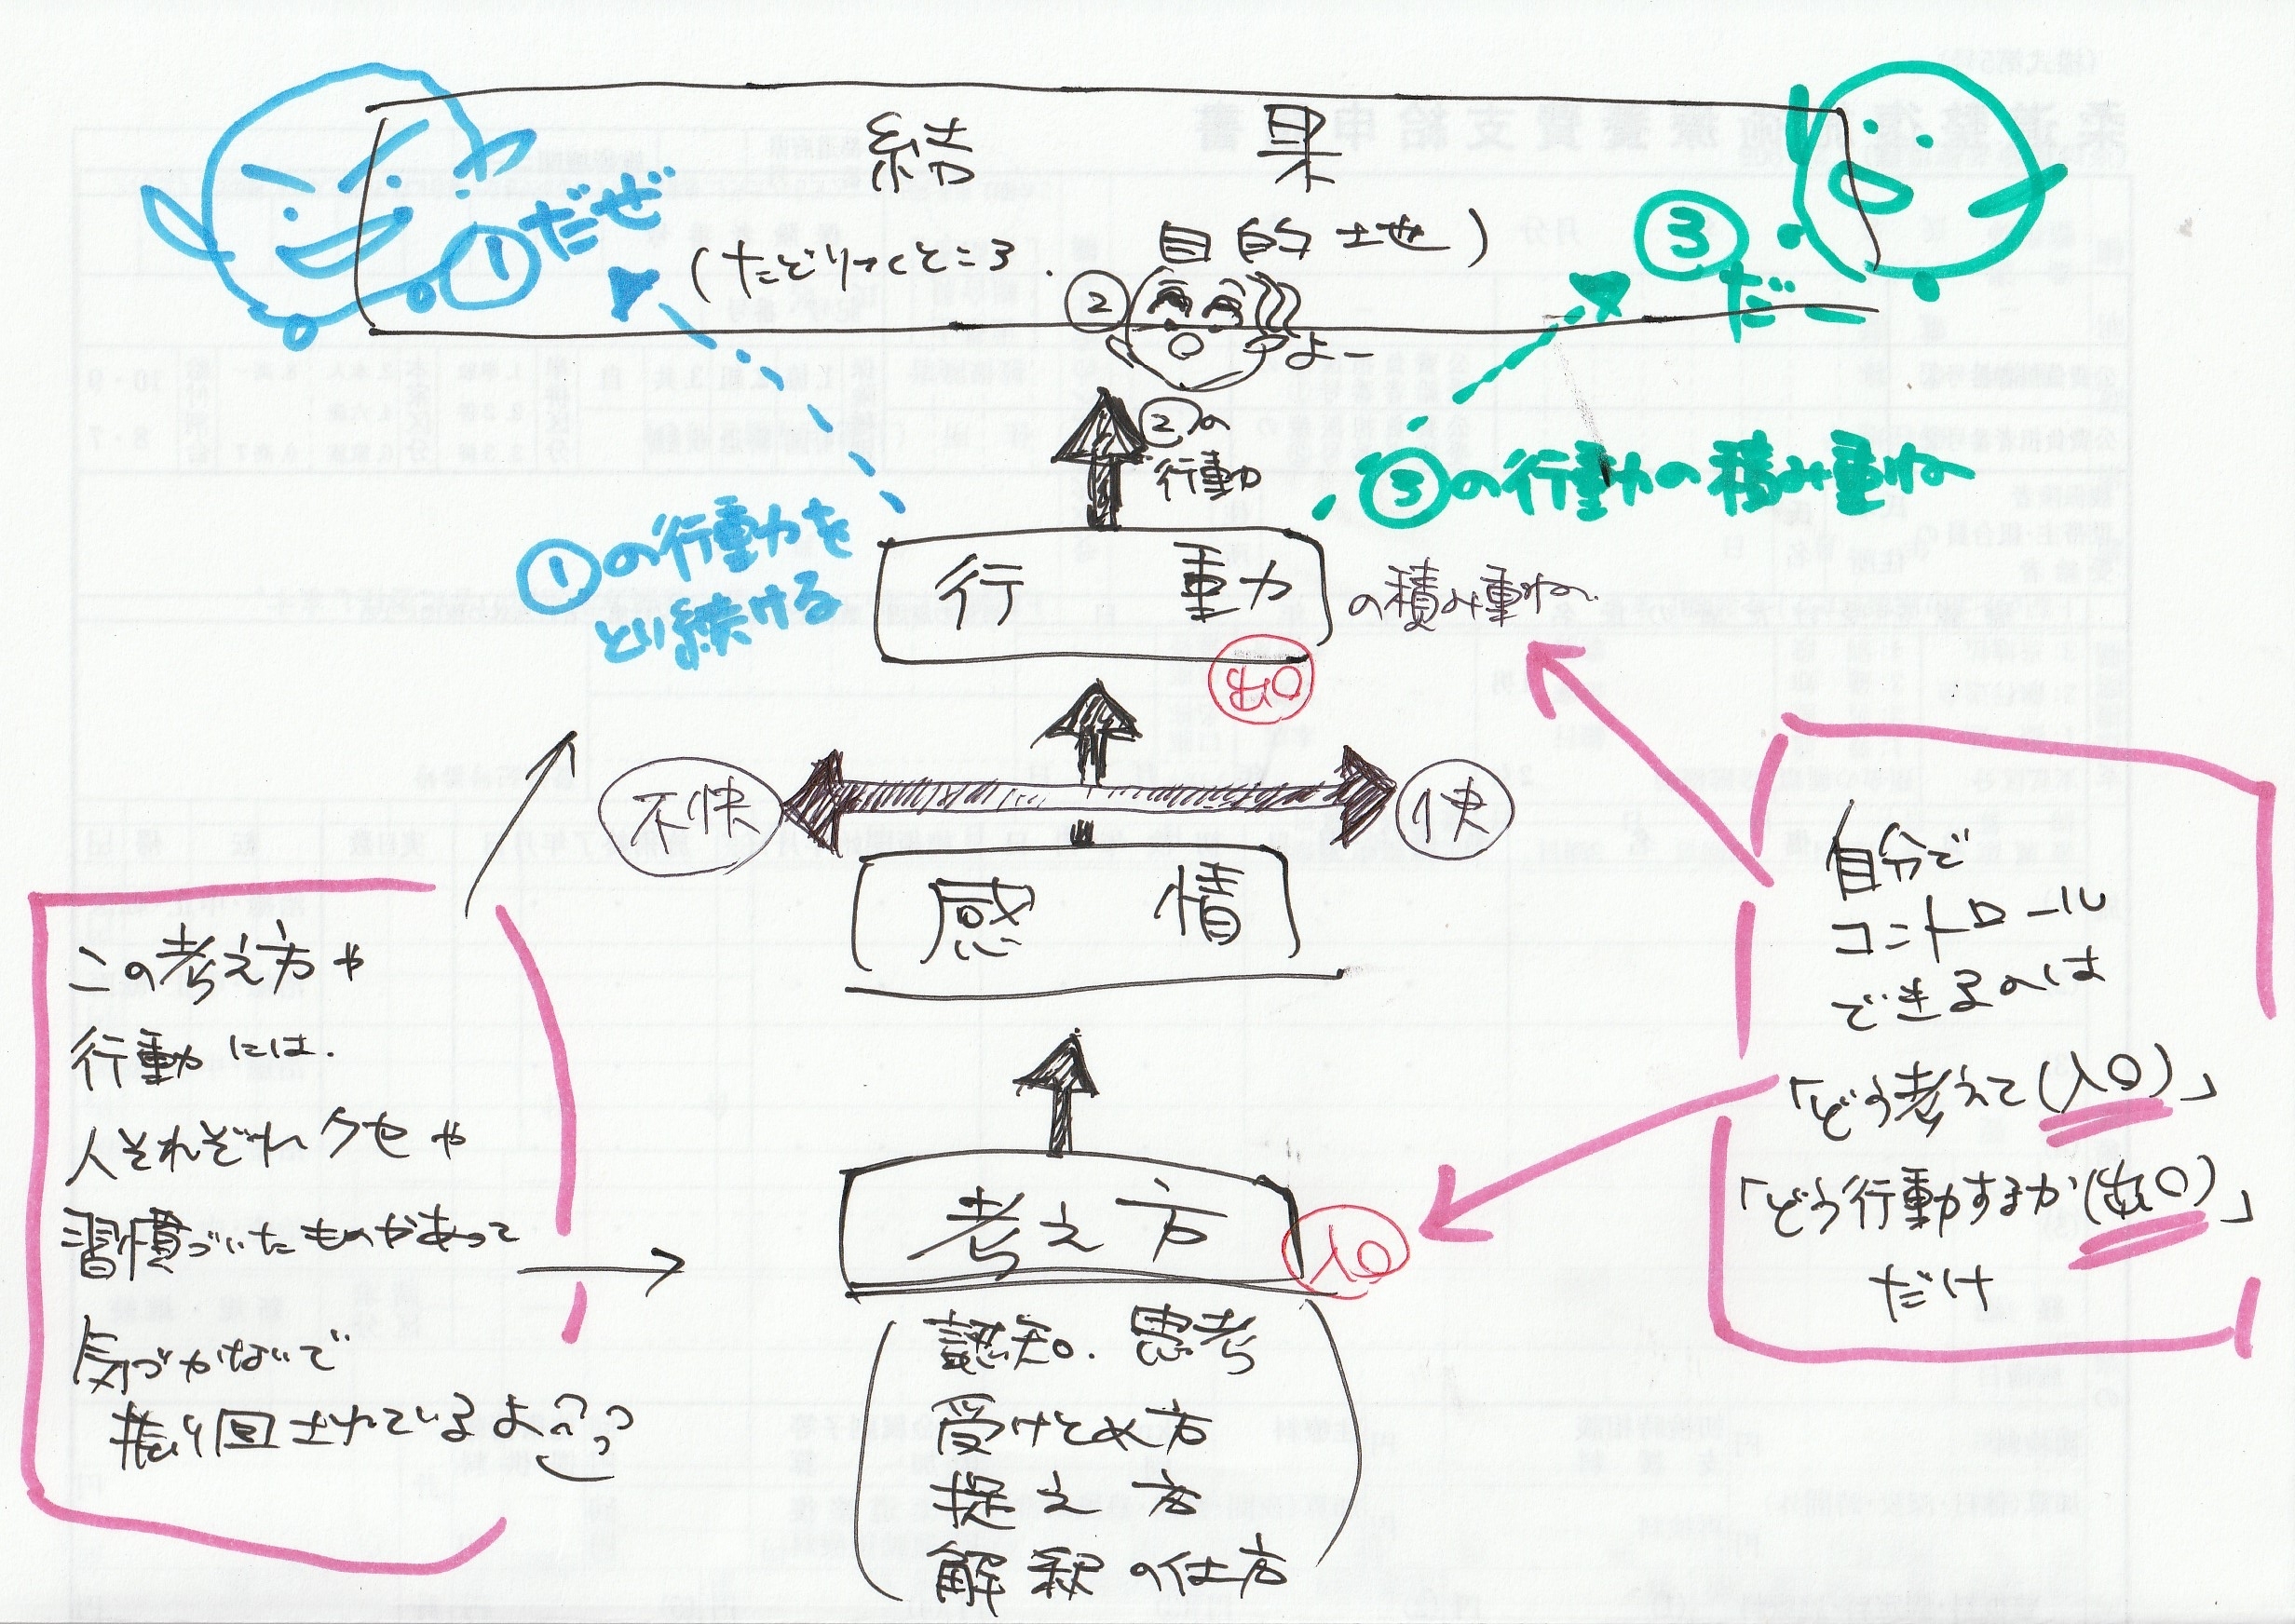 結果
(たどりつくところ、目的地)
①だぜ
②
よー
③
だー
②の
行動
①の行動を
とり続ける
③の行動の積み重ね
行動
の積み重ね
出口
不快
快
感情
考え方
入口
認知。思考
受けとめ方
捉え方
解釈の仕方
この考え方や
行動には、
人それぞれクセや
習慣づいたものがあって
気づかないで
振り回されているよ
自分で
コントロール
できるのは
「どう考えて(入口)」
「どう行動するか(出口)」
だけ